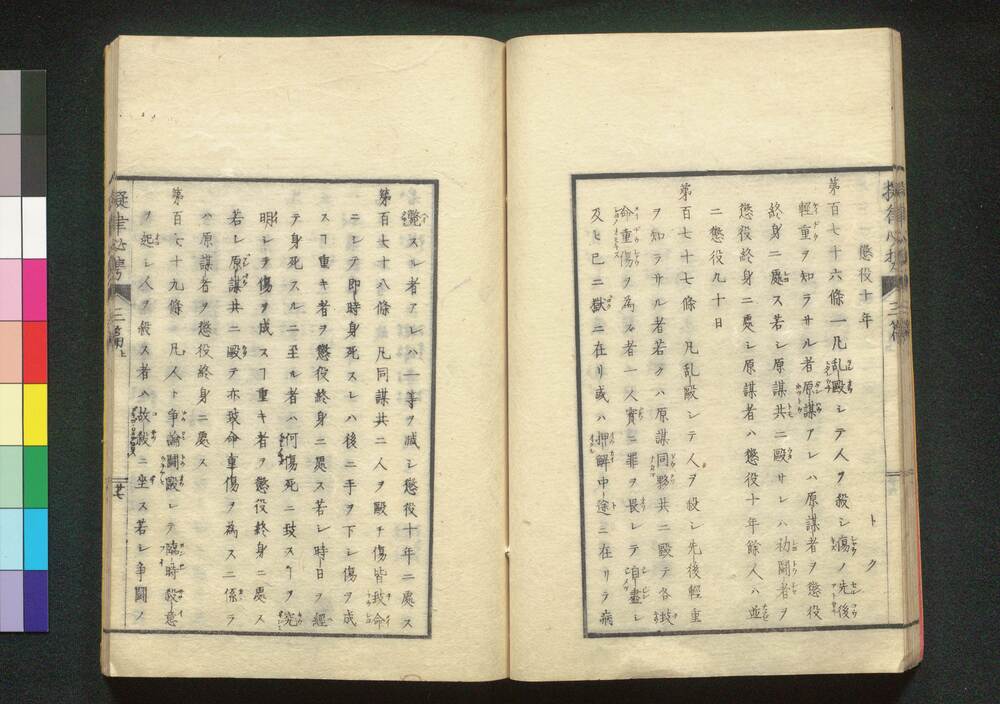 懲役十年
第百七十六條一凡乱毆シテ人ヲ殺シ傷ノ先後
輕重ヲ知ラサル者原謀アレハ原謀者ヲ懲役
終身ニ處ス若シ原謀共ニ毆サレハ初鬪者ヲ
懲役終身ニ處シ原謀者ハ懲役十年餘人ハ並
ニ懲役九十日
第百七十七條 凡乱毆シテ人ヲ殺シ先後輕重
ヲ知ラサル者若クハ原謀同夥共ニ毆テ各致
命重傷ヲ為ス者一人實ニ罪ヲ畏レテ自盡シ
及ヒ已ニ獄ニ在リ或ハ押解中途ニ在リテ病
斃スル者アレハ一等ヲ減シ懲役十年ニ處ス
第百七十八條 凡同謀共ニ人ヲ毆チ傷皆致命
ニシテ即時身死スレハ後ニ手ヲ下シ傷ヲ成
スヿ重キ者ヲ懲役終身ニ處ス若シ時日ヲ經
テ身死スルニ至ル者ハ何傷死ニ致スヿヲ究
明シ其傷ヲ成スヿ重キ者ヲ懲役終身ニ處ス
若シ原謀共ニ毆テ亦致命重傷ヲ為スニ係ラ
ハ原謀者ヲ懲役終身ニ處ス
第百七十九條 凡人ト爭論鬪毆シテ臨時殺意
ヲ起シ人ヲ殺ス者ハ故殺ニ坐ス若シ爭鬪ノ
擬律必携 三篇上
廿七